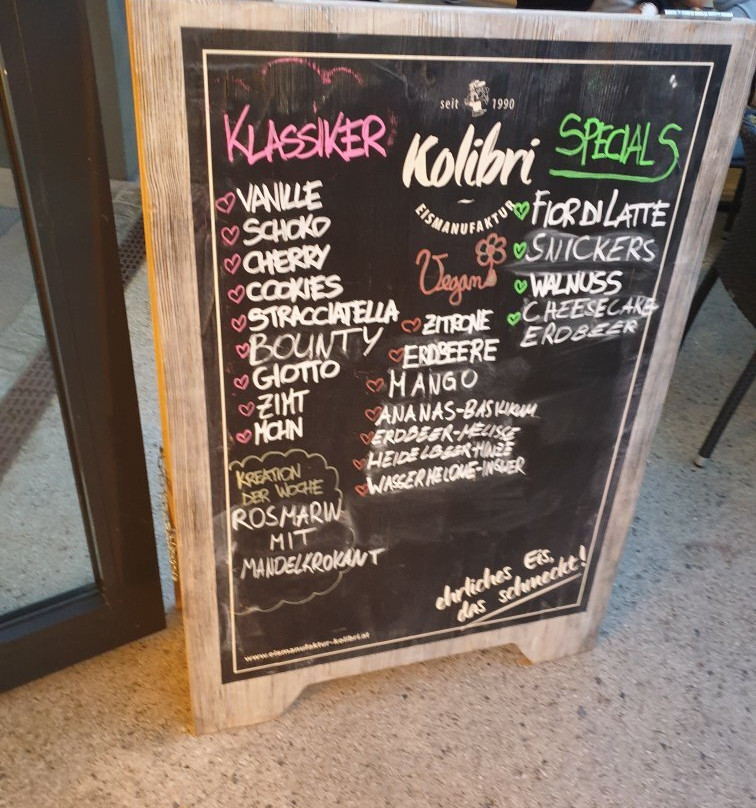 seit 1990
Kolibri
EISMANUFAKTUR
KLASSIKER
VANILLE
SCHOKO
CHERRY
COOKIES
STRACCIATELLA
BOUNTY
GIOTTO
ZIMT
MOHN
KREATION
DER WOCHE
ROSMARIN
MIT
MANDELKROKANT
Vegan
ZITRONE
ERDBEERE
MANGO
ANANAS-BASILIKUM
ERDBEER-MELISSE
HEIDELBEER-MINZE
WASSERMELONE-INGWER
SPECIALS
FIOR DI LATTE
SNICKERS
WALNUSS
CHEESECAKE
ERDBEER
ehrliches Eis,
das schmeckt!
www.eismanufaktur-kolibri.at